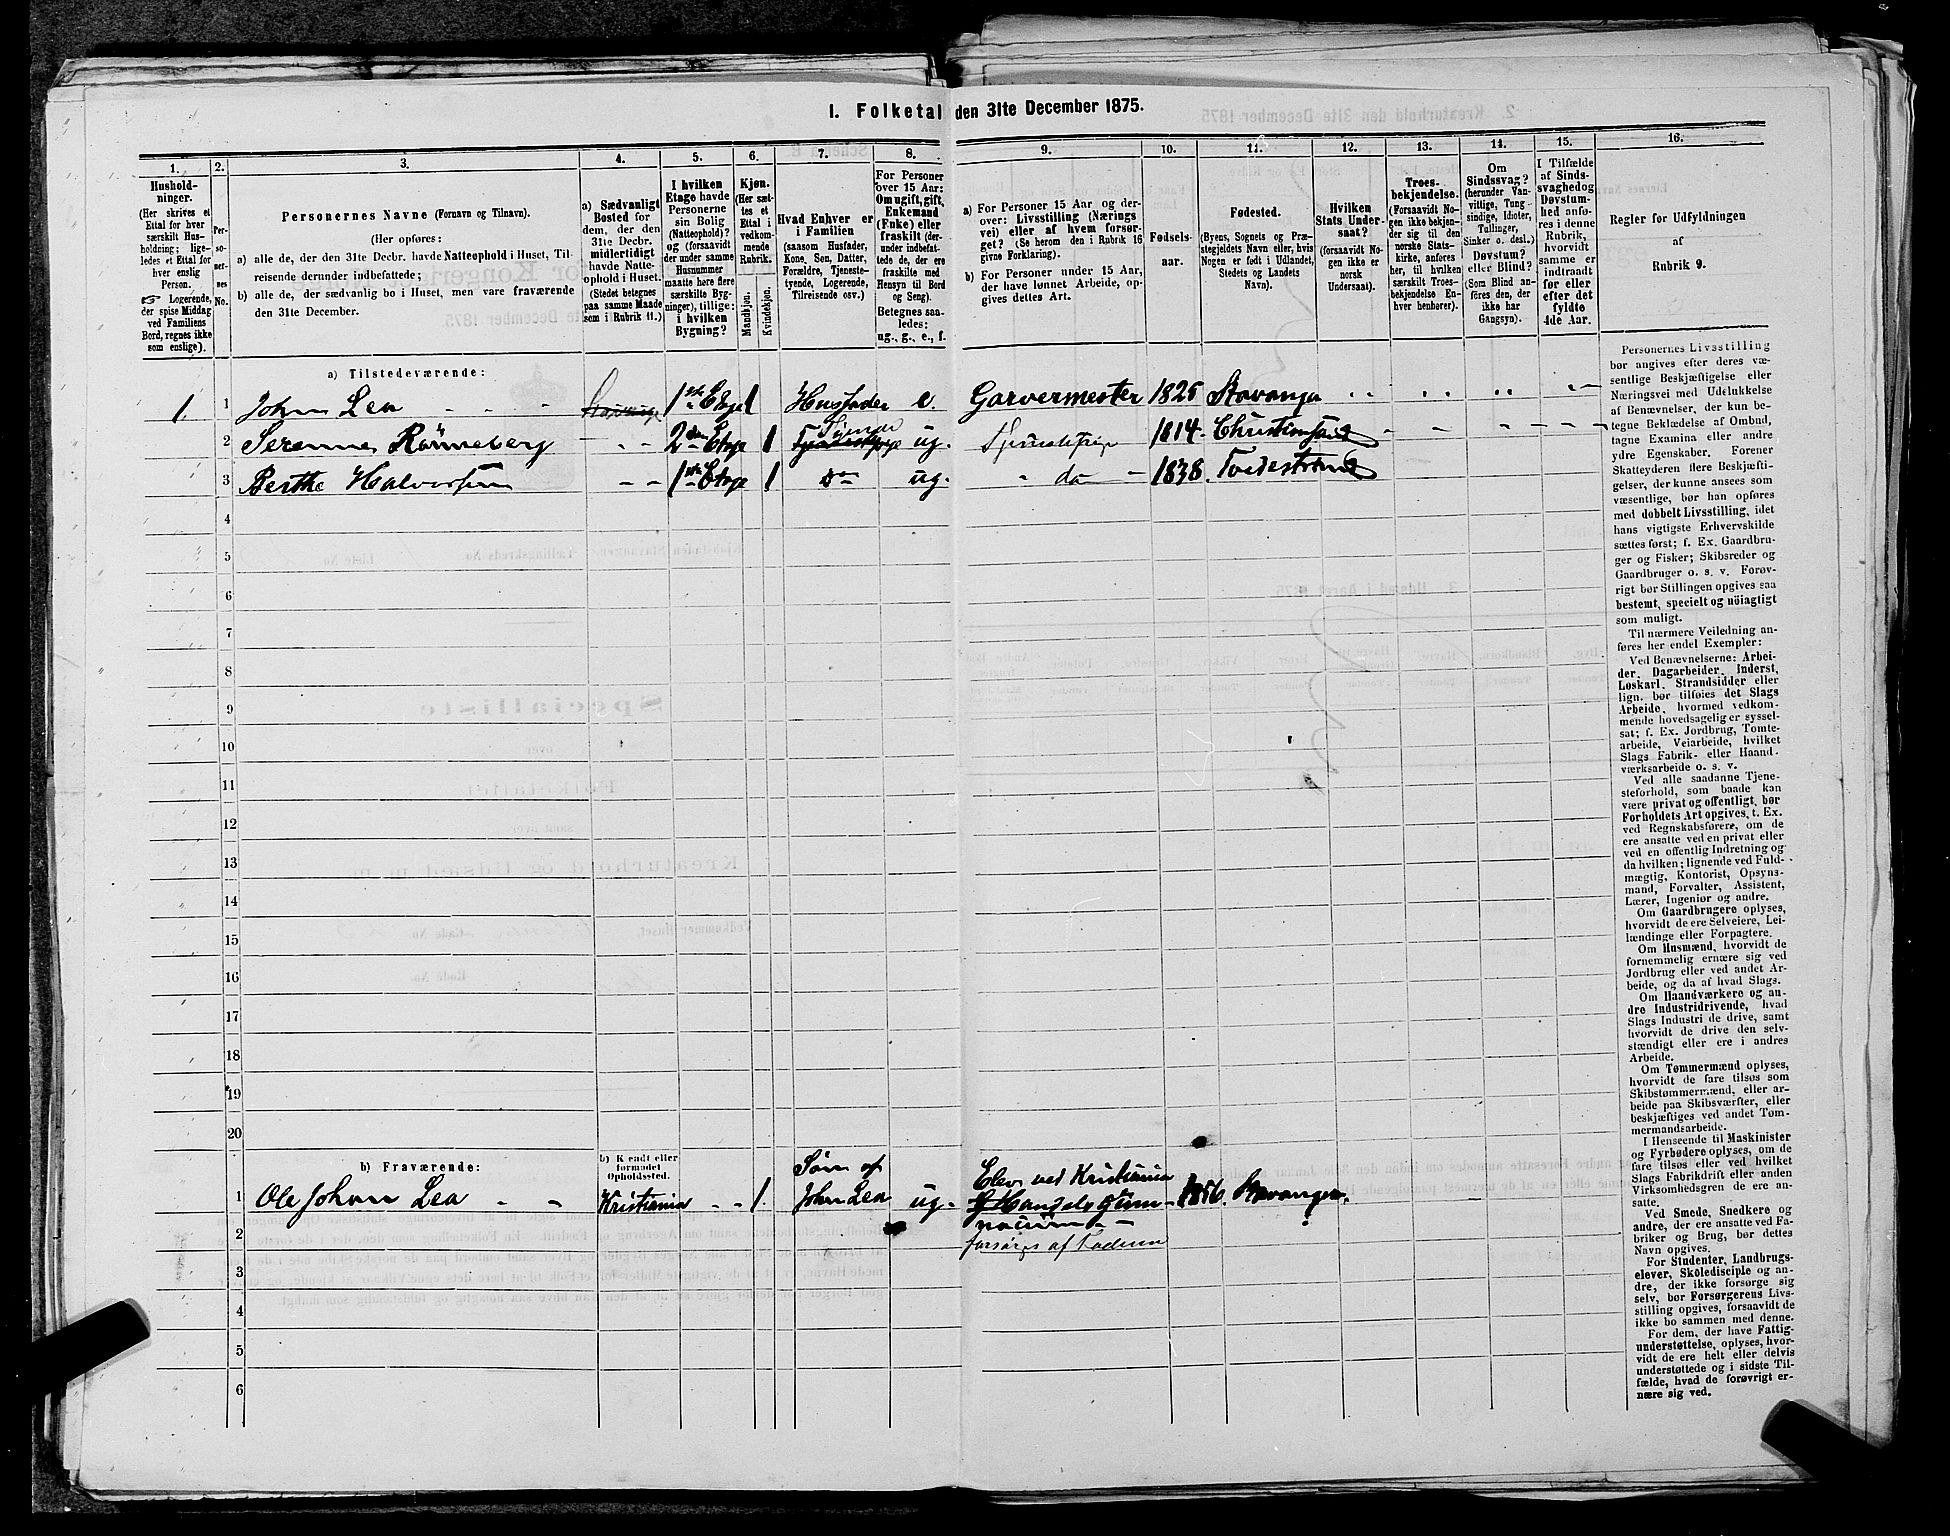 I. Folketal den 31te December 1875.
1. 2. 3. 4. 5. 6. 7. 8. 9. 10. 11. 12. 13. 14. 15. 16.
Hushold-
ninger.
(Her skrives et
Ettal for hver
særskilt Hus-
holdning; lige-
ledes et Ettal for
hver enslig
Person.
☞ Logerende,
der spise Middag
ved Familiens
Bord, regnes ikke
som enslige).
Per-
so-
ner-
nes
No.
Personernes Navne (Fornavn og Tilnavn).
(Her opføres:
a) alle de, der den 31te Decbr. havde Natteophold i Huset, Til-
reisende derunder indbefattede;
b) alle de, der sædvanlig bo i Huset, men vare fraværende
den 31te December.
a) Sædvanligt
Bosted for
dem, der den
31te Decbr.
midlertidigt
havde Natte-
ophold i Huset.
(Stedet betegnes
paa samme Maade
som i Rubrik 11.)
I hvilken
Etage havde
Personerne
sin Bolig
(Natteophold)?
og (forsaavidt
der under samme
Husnummer
maatte høre flere
særskilte Byg-
ninger), tillige:
i hvilken
Bygning?
Kjøn.
(Her sæt-
tes et
Ettal i
vedkom-
mende
Rubrik.
Mandkjøn.
Kvindekjøn.
Hvad Enhver er
i Familien
(saasom Husfader,
Kone, Søn, Datter,
Forældre, Tjeneste-
tyende, Logerende,
Tilreisende osv.)
For Personer
over 15 Aar:
Om ugift, gift,
Enkemand
(Enke) eller
fraskilt (der-
under indbefat-
tede de, der ere
fraskilte med
Hensyn til Bord
og Seng).
Betegnes saa-
ledes:
ug., g., e., f.
a) For Personer 15 Aar og der-
over: Livsstilling (Nærings
vei) eller af hvem forsør-
get? (Se herom den i Rubrik 16
givne Forklaring).
b) For Personer under 15 Aar,
der have lønnet Arbeide, op-
gives dettes Art.
Fødsels-
aar.
Fødested.
(Byens, Sognets og Præ-
stegjeldets Navn eller, hvis
Nogen er født i Udlandet,
Stedets og Landets
Navn).
Hvilken
Stats Under-
saat?
(forsaavidt No-
gen ikke er
norsk
Undersaat).
Troes-
bekjendelse.
(Forsaavidt No-
gen ikke bekjen-
der sig til den
norske Stats-
kirke, anføres
her, til hvilken
særskilt Troes-
bekjendelse En-
hver henhører).
Om
Sindssvag?
(herunder Van-
vittige, Tung-
sindige, Idioter,
Tullinger,
Sinker o. desl.)
Døvstum?
eller Blind?
(Som Blind an-
føres den, der
ikke har
Gangsyn).
I Tilfælde
af Sinds-
svaghed og
Døvstum-
hed anfø-
res i denne
Rubrik,
hvorvidt
samme er
indtraadt
før eller
efter det
fyldte
4de Aar.
Regler for Udfyldningen
af
Rubrik 9.
a) Tilstedeværende:
1. 1 John Lea 1ste Etge 1 Husfader e. Garvermester 1826 Stavanger
2 Serenne Rönneberg 2den Etge 1 ug. 1814 Christiansand
3 Berthe Halvorsen 1ste Etge 1 do ug. do 1838. Tvedestrand
4
5
6
7
8
9
10
11
12
13
14
15
16
17
18
19
20
b) Fraværende:
b) Kjendt eller
formodet
Opholdssted.
1 Ole Johan Lea Kristiania 1. Søn af
John Lea ug. Elev ved Kristiania
Handelsgym-
nasium
forsørges af Faderen 1856. Stavanger.
2
3
4
5
6
Personernes Livsstilling
bør angives efter deres væ-
sentlige Beskjæftigelse eller
Næringsvei med Udelukkelse
af Benævnelser, der kun be-
tegne Beklædelse af Ombud,
tagne Examina eller andre
ydre Egenskaber. Forener
Skatteyderen flere Beskjæfti-
gelser, der kunne ansees som
væsentlige, bør han opføres
med dobbelt Livsstilling, idet
hans vigtigste Erhvervskilde
sættes først; f. Ex. Gaardbru-
ger og Fisker; Skibsreder og
Gaardbruger o. s. v. Forøv-
rigt bør Stillingen opgives saa
bestemt, specielt og nöiagtigt
som muligt.
Til nærmere Veiledning an-
føres her endel Exempler:
Ved Benævnelserne: Arbei-
der, Dagarbeider, Inderst,
Løskarl, Strandsidder eller
lign. bør tilføies det Slags
Arbeide, hvormed vedkom-
mende hovedsagelig er syssel-
sat; f. Ex. Jordbrug, Tomte-
arbeide, Veiarbeide, hvilket
Slags Fabrik- eller Haand-
værksarbeide o. s. v.
Ved alle saadanne Tjene-
steforhold, som baade kan
være privat og offentligt, bør
Forholdets Art opgives, t. Ex.
ved Regnskabsførere, om de
ere ansatte ved en privat eller
ved en offentlig Indretning og
da hvilken; lignende ved Fuld-
mægtig, Kontorist, Opsyns-
mand, Forvalter, Assistent,
Lærer, Ingeniør og andre.
Om Gaardbrugere oplyses,
hvorvidt de ere Selveiere, Lei-
lændinge eller Forpagtere.
Om Husmænd, hvorvidt de
fornemmelig ernære sig ved
Jordbrug eller ved andet Ar-
beide, og da af hvad Slags.
Om Haandværkere og an-
dre Industridrivende, hvad
Slags Industri de drive, samt
hvorvidt de drive den selv-
stændigt eller ere i andres
Arbeide.
Om Tømmermænd oplyses,
hvorvidt de fare tilsøs som
Skibstømmermænd, eller ar-
beide paa Skibsværfter, eller
beskjæftiges ved andet Tøm-
mermandsarbeide.
I Henseende til Maskinister
og Fyrbødere oplyses, om de
fare tilsøs eller ved hvilket
Slags Fabrikdrift eller anden
Virksomhedsgren de ere an-
satte.
Ved Smede, Snedkere og
andre, der ere ansatte ved Fa-
briker og Brug, bør dettes
Navn opgives.
For Studenter, Landbrugs-
elever, Skoledisciple og an-
dre, der ikke forsørge sig
selv, bør Forsørgerens Livs-
stilling opgives, forsaavidt de
ikke bo sammen med denne.
For dem, der have Fattig-
understøttelse, oplyses, hvor-
vidt de ere helt eller delvis
understøttede og i sidste Til-
fælde, hvad de forøvrigt er-
nære sig ved.